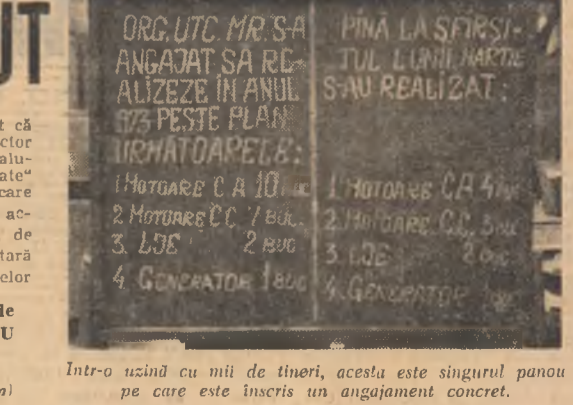 UT
t că
ctor
alu-
ate“
care
ac-
de
tară
elor
de
U
n)
ORG. UTC. MR. S-A
ANGAJAT SĂ RE-
ALIZEZE ÎN ANUL
973 PESTE PLAN
URMĂTOARELE:
1 MOTOARE C A 10 BUC
2 MOTOARE CC 7 BUC.
3. LDE 2 BUC
4. GENERATOR 1 BUC
PÎNĂ LA SFÎRȘI-
TUL LUNII MARTIE
S-AU REALIZAT:
1 MOTOARE CA 4 BUC
2 MOTOARE C.C. 3 BUC
3 LDE 2 BUC
4. GENERATOR
Intr-o uzină cu mii de tineri, acesta este singurul panou
pe care este înscris un angajament concret.